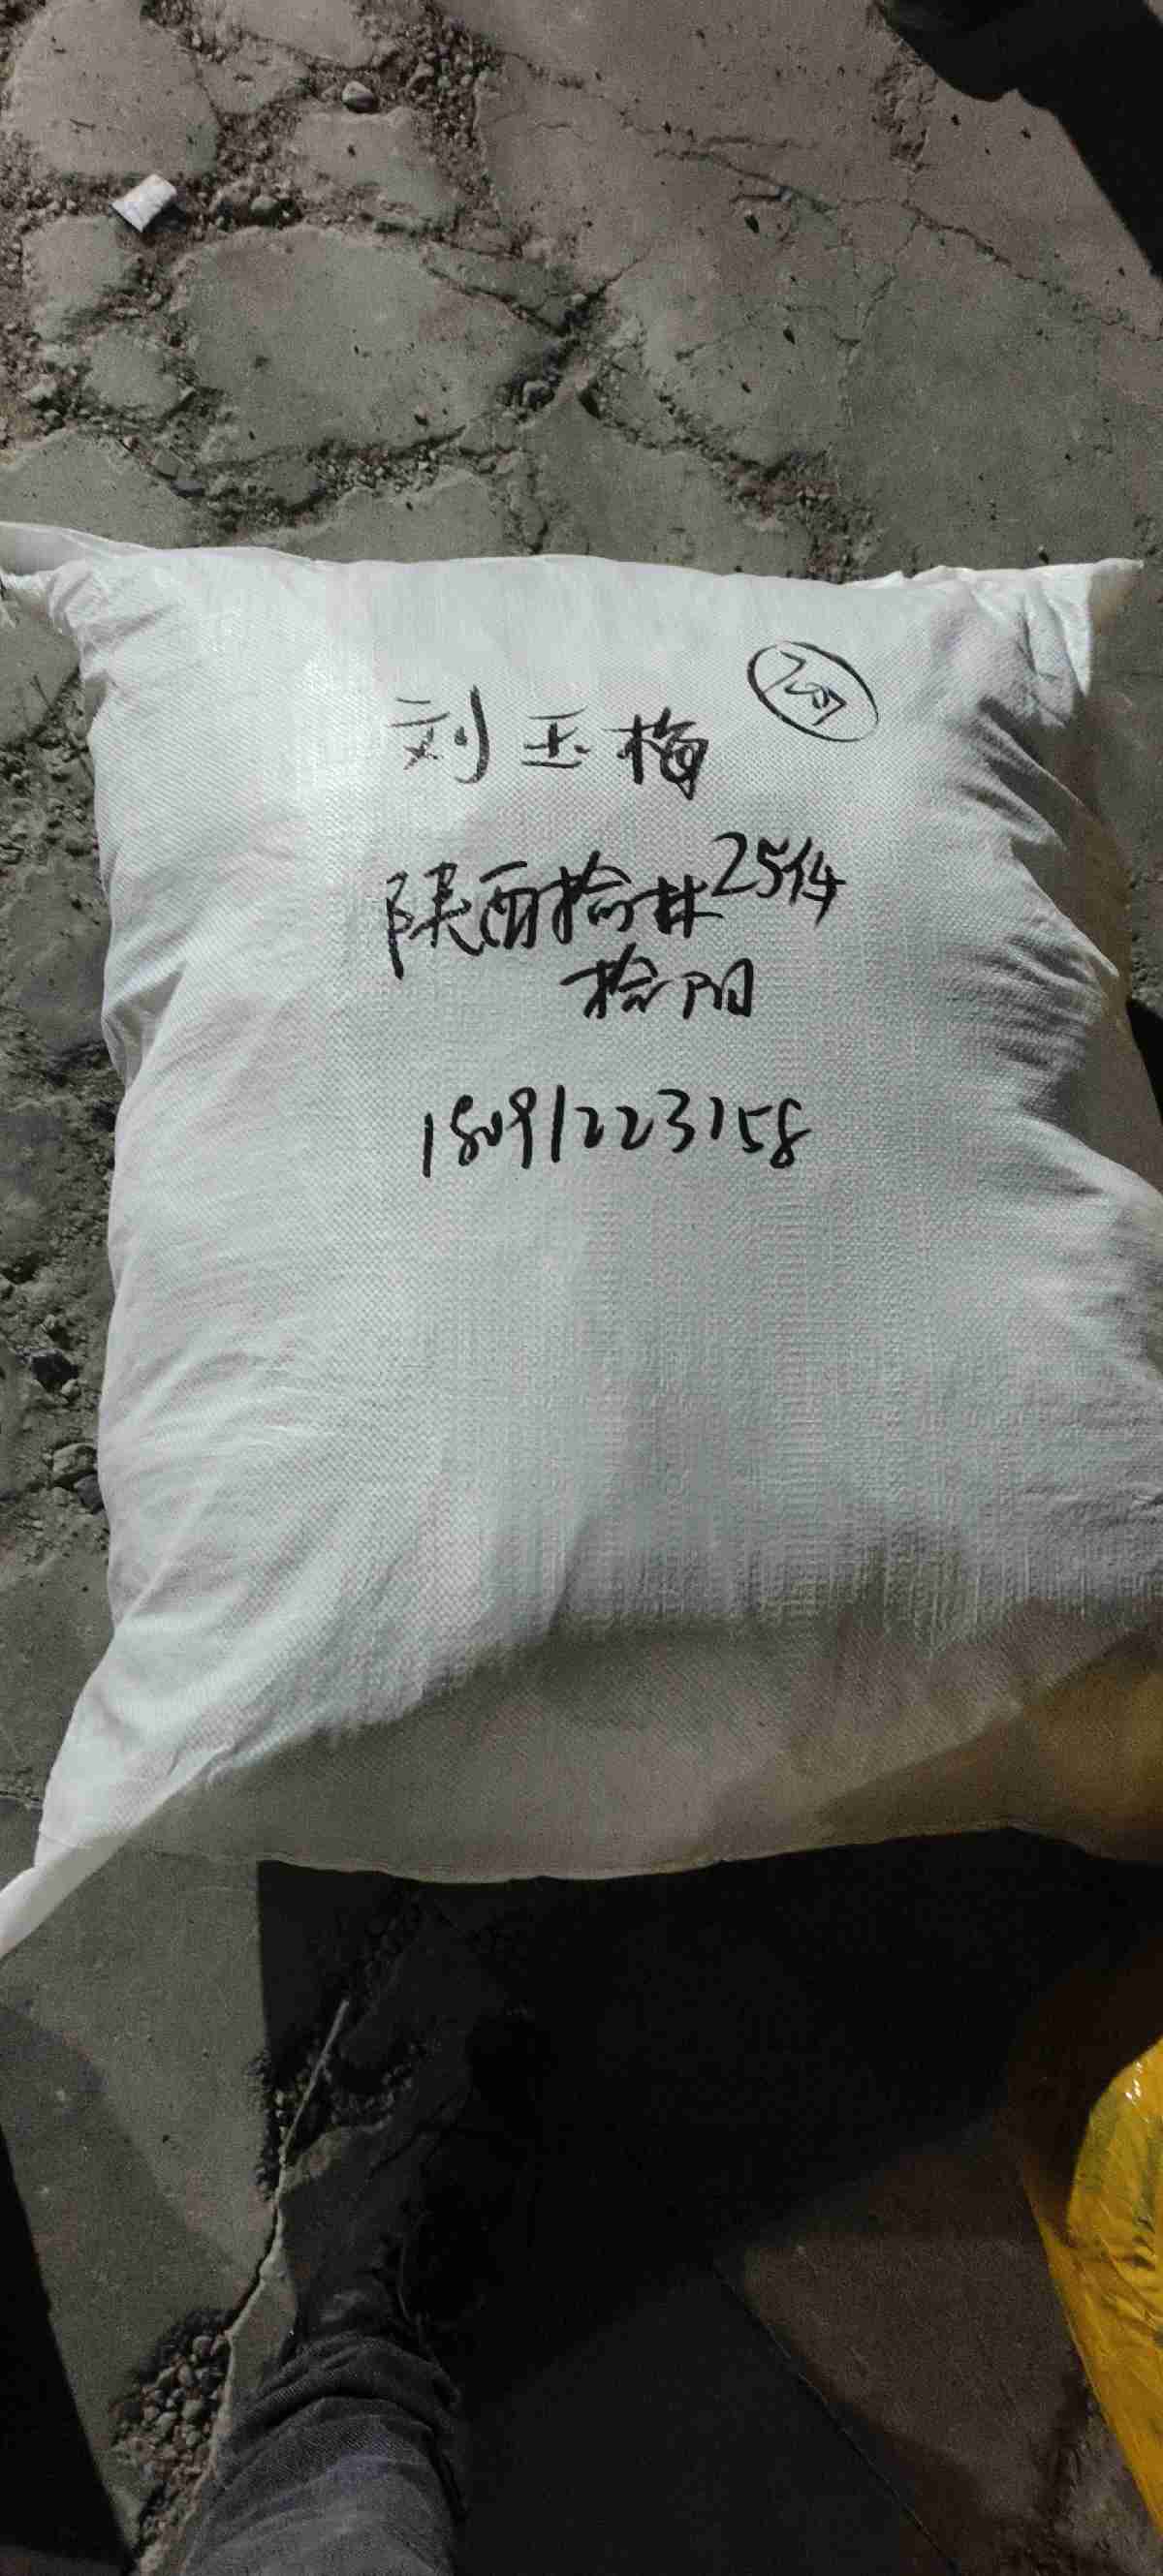 刘玉梅
陕西榆林25件
榆阳
18091223158